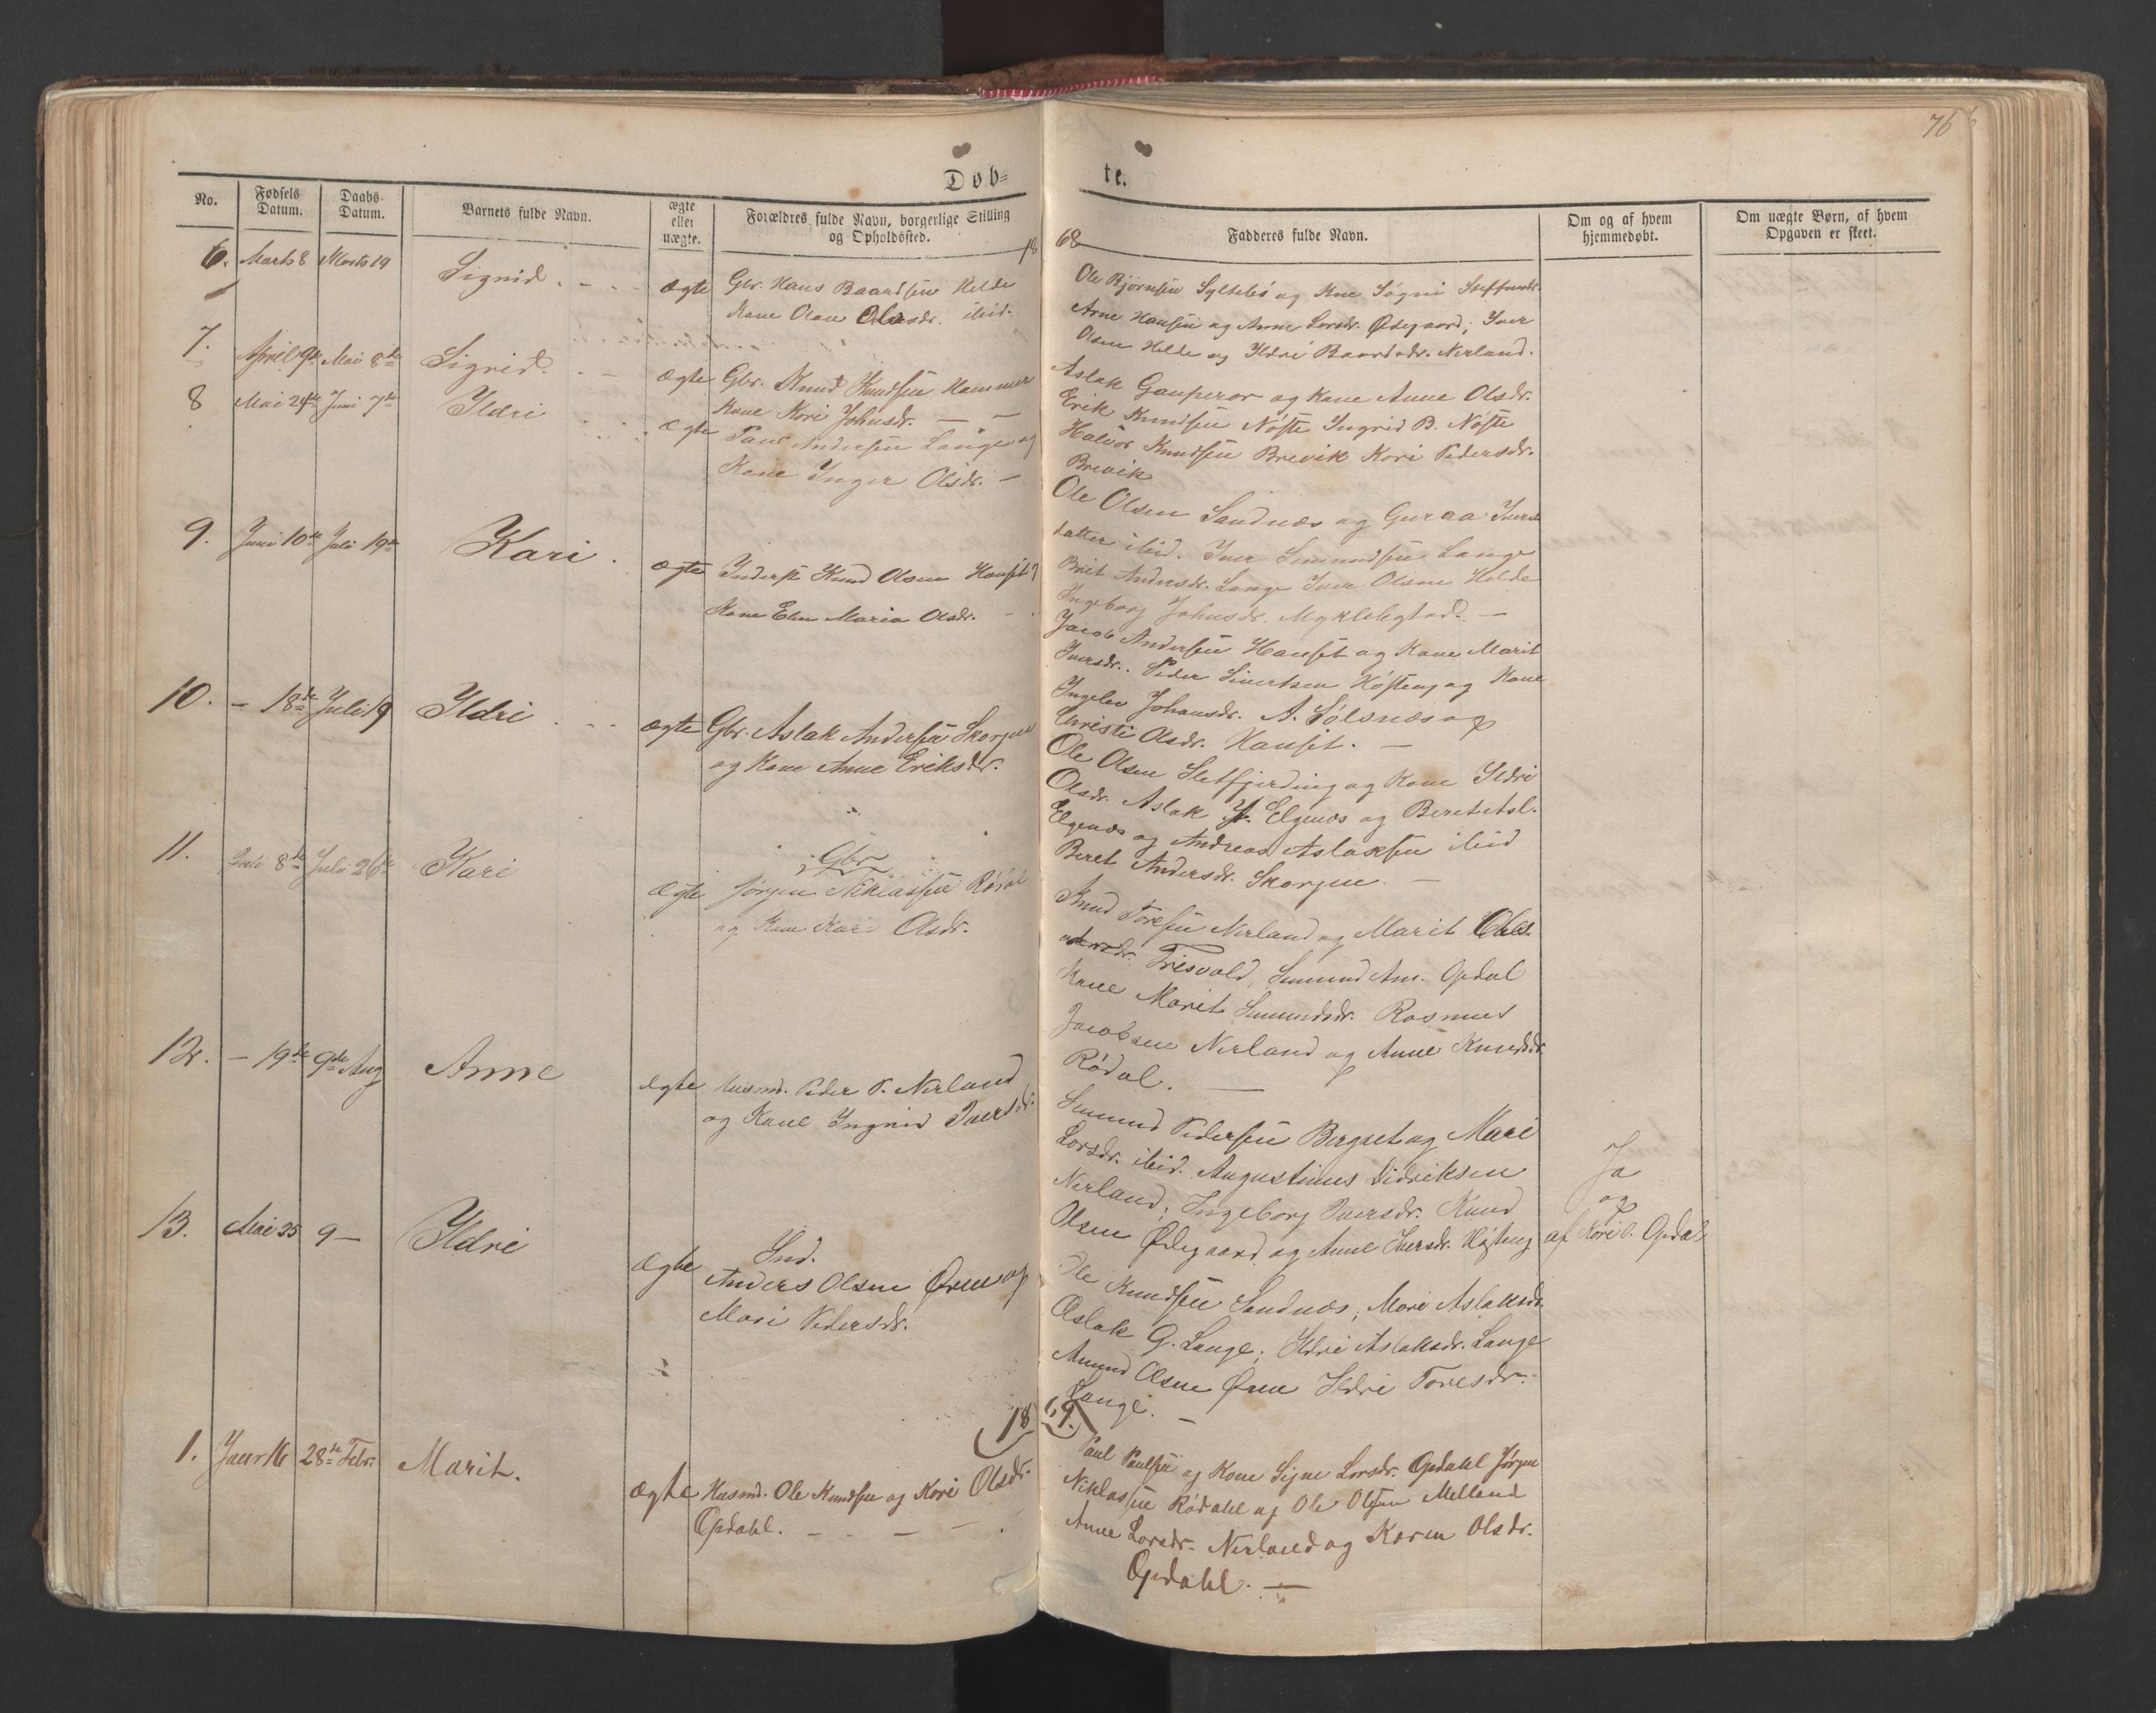 76
Døb=
te.
No.
Fødsels Datum.
Daabs-Datum.
Barnets fulde Navn.
ægte eller uægte.
Forældres fulde Navn, borgerlige Stilling og Opholdssted.
Fadderes fulde Navn.
Om og af hvem hjemmedøbt.
Om uægte Børn, af hvem Opgaven er skeet.
18 68
6. Marts 8 Marts 19 Signid. ægte Gbr. Hans Baardsen Helde
Kone Olau Olsdr. ibid.
Ole Bjørnsen Syltebø og Kne Søgni Steffensdr.
Arne Hansen og Anne Larsdr. Ødegaard; Iver
Olsen Helde og Ildri Baardsdr. Nerland.
7. April 9de Mai 8de Sigrid. ægte Gbr. Knud Knudsen Hammer
Kone Kari Johnsdr.
Aslak Gauperor og Kone Anne Olsdr.
Erik Knudsen Nøste Ingrid B. Nøste
Halvor Knudsen Brevik Kari Pedersdr.
Brevik
8 Mai 24de Juni 7de Ildri ægte Paul Andersen Lange og
Kone Inger Olsdr. -
Ole Olsen Sandnæs og Guraa Ivers
datter ibid. Iver Simundsen Lange
Brit Andersdr. Lange Iver Olsen Helde
Ingeborg Johnsdr. Myklebostad. -
9. Juni 10de Juli 19de Kari. ægte Inderst Knud Olsen Hauset og
Kone Elen Maria Olsdr. -
Jacob Andersen Hauset og Kone Marit
Iversdr. Peder Sivertsen Høsteng og Kone
Ingelev Johansdr. A. Sølsnæs og
Christi Olsdr. Hauset. -
10. - 18de Juli 19 Ildri ægte Gbr. Aslak Andersen Skorgen
og Kone Anne Eriksdr.
Ole Olsen Sletfjerding og Kone Ildri
Olsdr. Aslak J. Elgenæs og Beret Asl.
Elgenæs og Andreas Aslaksen ibid
Beret Andersdr. Skorgen -
11. Juli 8de Juli 26de Kari ægte Gbr
Jørgen Niklassen Rødal
og Kone Kari Olsdr.
Knud Toresen Nerland og Marit
Tresvold, Simund Am. Opdal
Kone Marit Simundsdr. Rasmus
Jacobsen Nerland og Anne Knudsdr.
Rødal. -
12. - 19de 9de Aug Anne ægte Husmd. Peder P. Nerland
og Kone Ingrid Iversdr.
Simund Pedersen Bergset og Mari
Larsdr. ibid. Augustinus Didriksen
Nerland; Ingeborg Iversdr. Knud
Olsen Ødegaard og Anne Iversdr. Høsteng
Ja
og
af Kari O. Opdal
13. Mai 25 9 - Ildri ægte Ind.
Anders Olsen Øren og
Mari Pedersdr.
Ole Knudsen Sandnæs, Mari Aslaksdr.
Aslak G. Lange; Ildri Aslaksdr. Lange
Amund Olsen Øren Ildri Toresdr.
Lange. -
18 69.
1. Janr 16 28de Febr. Marit. ægte Husmd. Ole Knudsen og Kari Olsdr.
Opdahl. - - - -
Paul Paulsen og Kone Signe Larsdr. Opdahl Jørgen
Niklassen Rødahl og Ole Olsen Melland
Anne Larsdr. Nerland og Karen Olsdr.
Opdahl. -